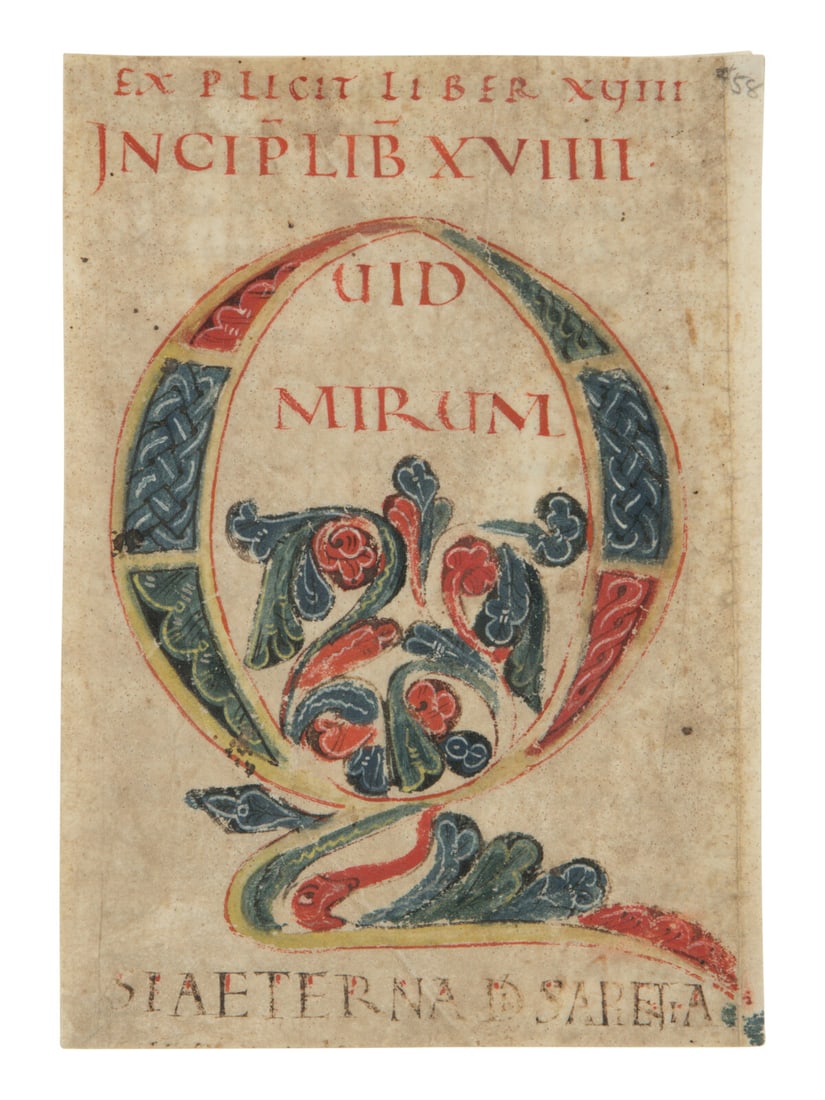 EXPLICIT LIBER XVIII
58
INCIP̄ LIB̄ XVIIII·
QUID
MIRUM
SI AETERNA D̄I SAPIENTIA